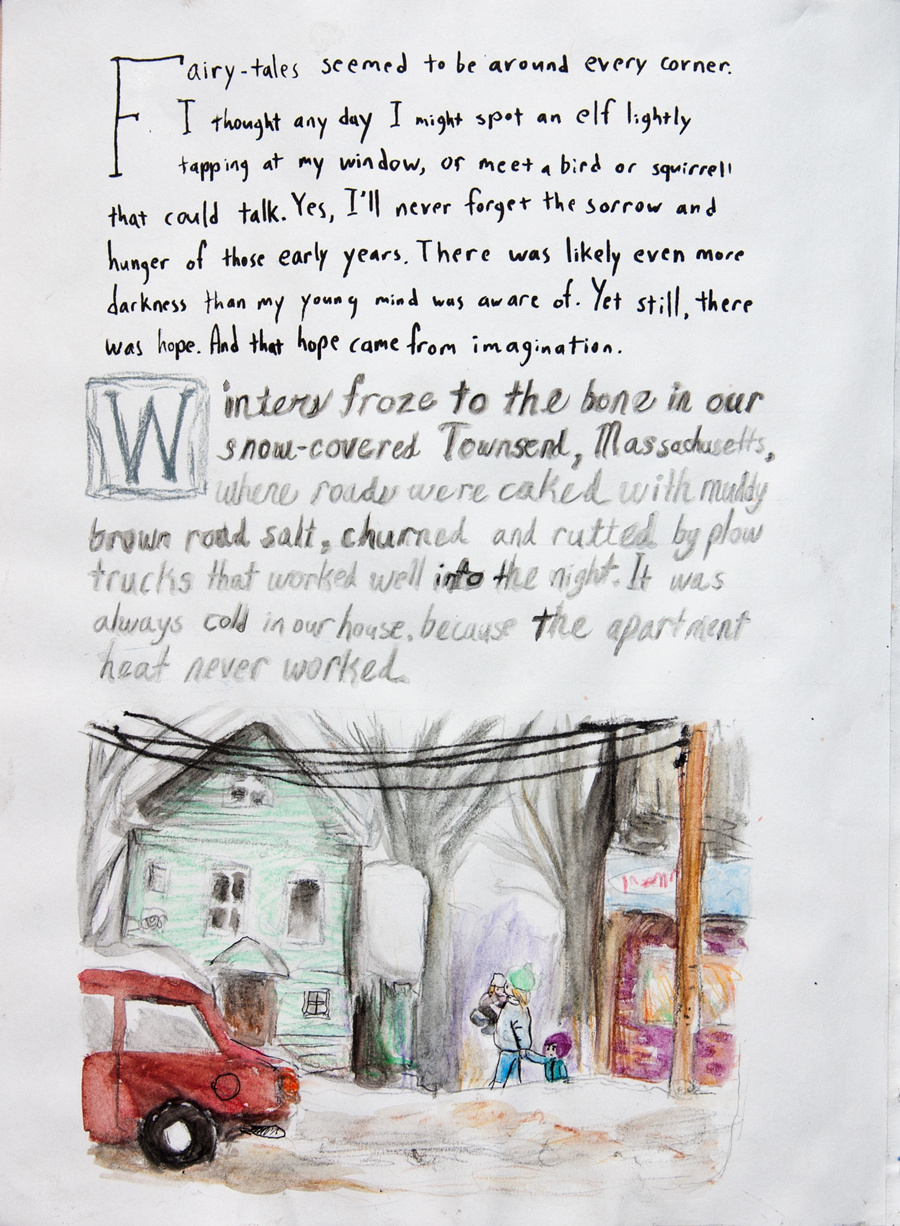 Fairy-tales seemed to be around every corner.
I thought any day I might spot an elf lightly
tapping at my window, or meet a bird or squirrell
that could talk. Yes, I'll never forget the sorrow and
hunger of those early years. There was likely even more
darkness than my young mind was aware of. Yet still, there
was hope. And that hope came from imagination.
Winters froze to the bone in our
snow-covered Townsend, Massachusetts,
where roads were caked with muddy
brown road salt, churned and rutted by plow
trucks that worked well into the night. It was
always cold in our house, because the apartment
heat never worked.